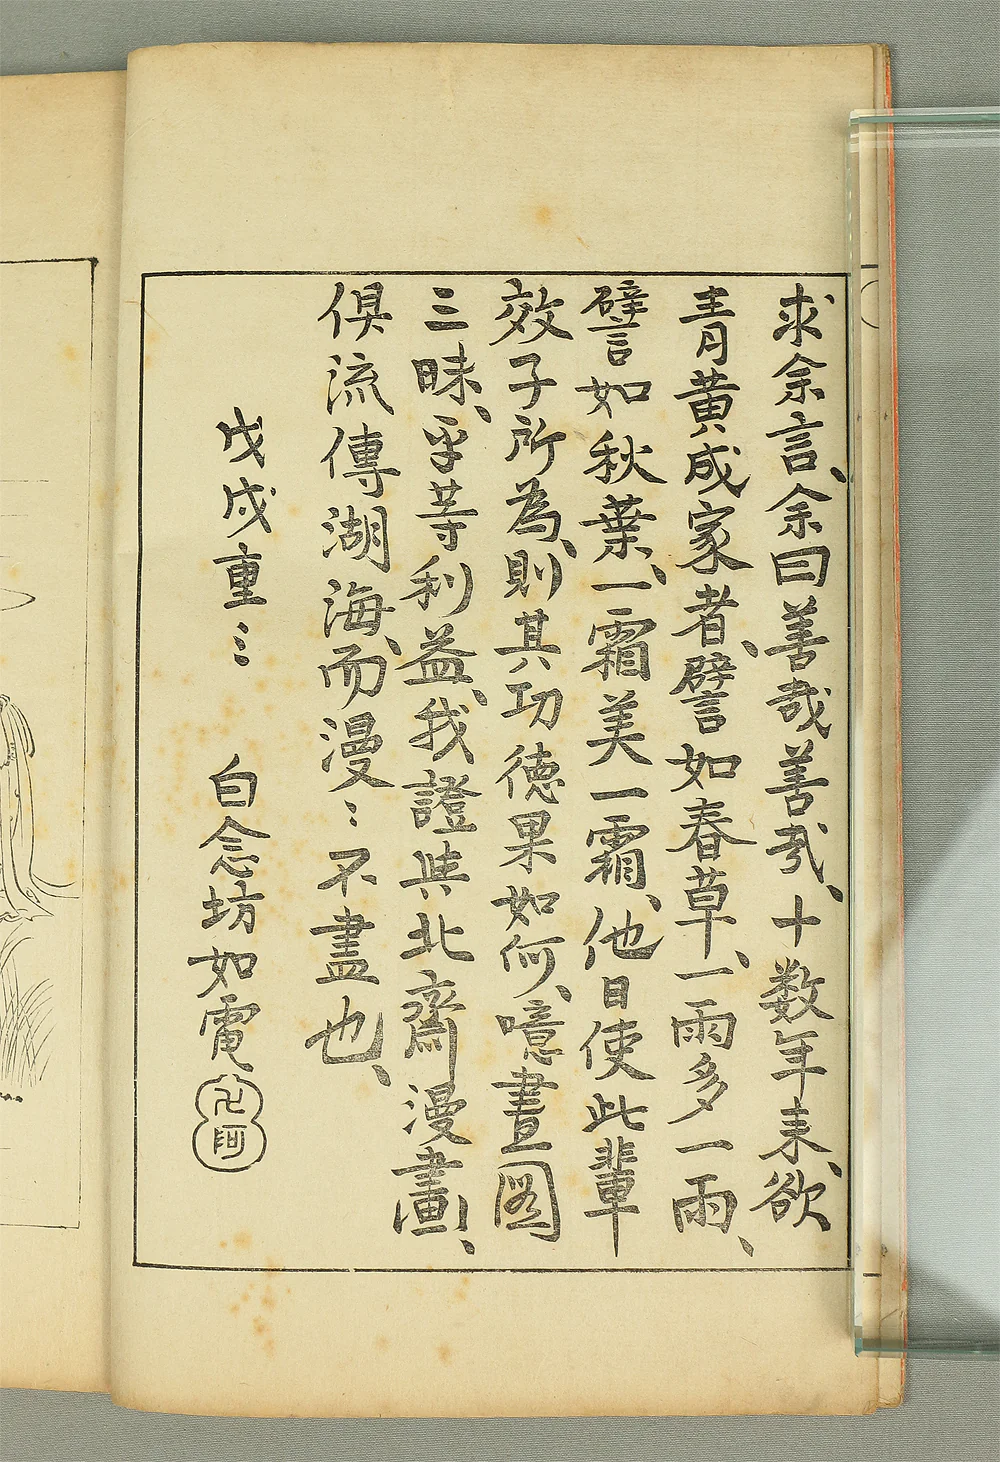 求余言、余曰善哉善哉、十数年来、欲
青黄成家者、譬如春草、一雨多一雨、
譬如秋葉、一霜美一霜、他日使此輩
效子所為、則其功徳果如何、噫畫圖
三昧、平等利益、我證其北齋漫畫、
俱流傳湖海、而漫〻不盡也、
戊戌重三 白念坊如電
卍阿